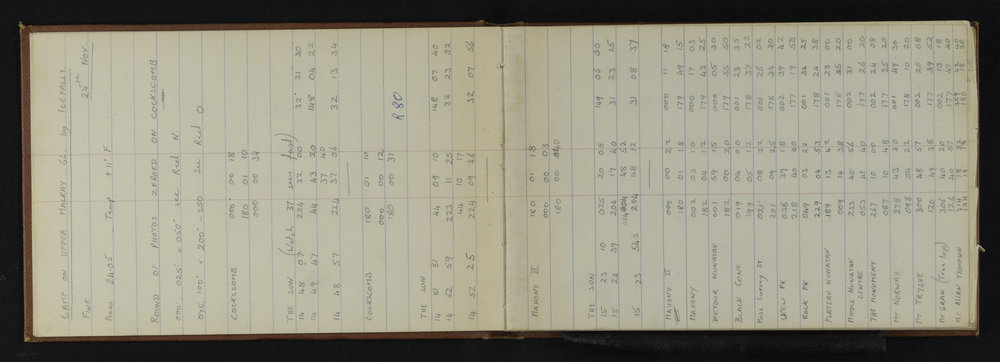 CAMP ON UPPER MACKAY GL. by ICEFALLS
FINE 25th Nov.
Press 24.05 Temp +11° F
ROUND OF PHOTOS ZEROED ON COCKSCOMB
000° 025° & 050° see Reel N
075, 100° & 200°-350 see Reel O
COCKSCOMB 000 00 18
180 01 10
000 00 34
THE SUN (Watch 37 secs fast)
14 48 07 224 32 00 32° 31' 30
14 49 47 44 43 20 148 04 22
37 40
14 48 57 224 37 06 32 13 34
COCKSCOMB 180 01 10
000 00 12
180 00 31
R 80
THE SUN
14 51 51 44 09 10 148 07 40
14 52 59 223 11 25 32 23 32
44 10 17
14 52 25 224 09 46 32 07 56
MAHONY II 180 01 18
000 00 03
180
THE SUN
15 23 10 025 20 05 149 06 00
15 24 39 204 17 40 31 23 15
48 52
15 23 54.5 204 48 12 31 08 37
MAHONY II 000 00 22 000 11 18
180 01 18 179 49 15
MAHONY 002 03 10 000 17 03
182 04 12 179 43 25
DETOUR NUNATAK 001 59 15 000 05 30
182 00 20 179 50 50
BLACK CONE 019 04 00 001 23 35
199 05 12 178 37 22
POSS SUNNY ST. 021 08 42 001 26 02
201 09 25 178 34 30
SKEW PK 038 39 18 002 39 42
218 40 40 177 19 53
ROCK PK 049 03 22 001 34 25
229 04 53 178 24 38
PLATEAU NUNATAK 189 13 42 001 23 00
009 14 38 178 35 20
MIDDLE NUNATAK 233 40 56 002 31 00
CENTRE 053 41 40 177 26 20
THE MONUMENT 267 10 00 002 24 08
087 10 48 177 35 20
MT NORWAY 278 43 20 001 49 30
098 04 22 178 10 20
MT TRYGVE 300 48 57 002 20 08
120 49 36 177 39 52
MT GRAN (Tree top) 306 40 20 002 13 18
126 40 57 177 47 40
MT ALLAN THOMPSON